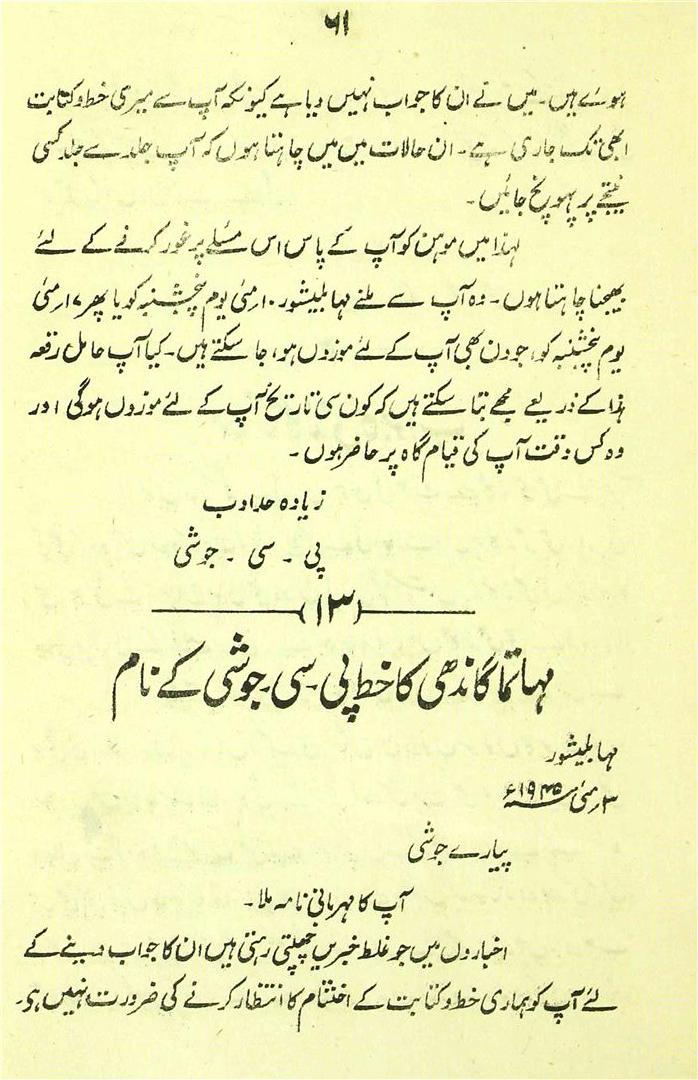 ۶۱
ہوئے ہیں۔ میں نے ان کا جواب نہیں دیا ہے کیونکہ آپ سے میری خط و کتابت
ابھی تک جاری ہے۔ ان حالات میں میں چاہتا ہوں کہ آپ جلد سے جلد کسی
نتیجے پر پہونچ جائیں۔
لہٰذا میں موہن کو آپ کے پاس اس مسئلے پر غور کرنے کے لئے
بھیجنا چاہتا ہوں۔ وہ آپ سے ملنے مہابلیشور ۱۰ مئی یوم پنجشنبہ کو یا پھر ۱۷ مئی
یوم پنجشنبہ کو، جو دن بھی آپ کے لئے موزوں ہو، جا سکتے ہیں۔ کیا آپ حامل رقعہ
ہذا کے ذریعے مجھے بتا سکتے ہیں کہ کون سی تاریخ آپ کے لئے موزوں ہوگی اور
وہ کس وقت آپ کی قیام گاہ پر حاضر ہوں۔
زیادہ حد ادب
پی۔ سی۔ جوشی
(۱۳)
مہاتما گاندھی کا خط پی۔سی۔جوشی کے نام
مہابلیشور
۳ مئی ۱۹۴۵ء
پیارے جوشی
آپ کا مہربانی نامہ ملا۔
اخباروں میں جو غلط خبریں چھپتی رہتی ہیں ان کا جواب دینے کے
لئے آپ کو ہماری خط و کتابت کے اختتام کا انتظار کرنے کی ضرورت نہیں ہی۔